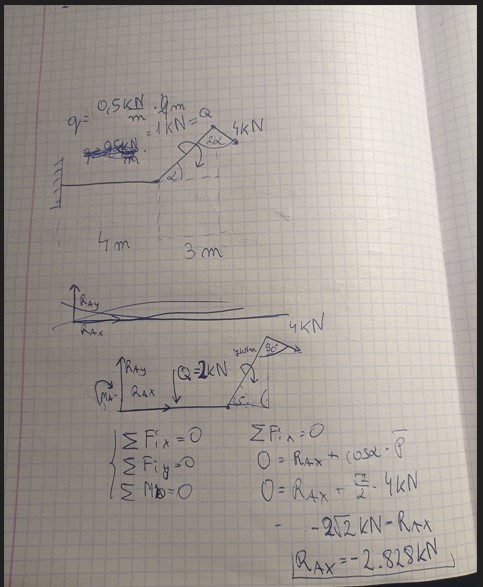 q = 0,5 kN/m · 4m
= 1kN = Q
4kN
2α
α
4 m
3 m
RAy
RAx
4KN
RAy
RAx
MA
Q=2kN
90°
45
ΣFix = 0
ΣFiy = 0
ΣFix = 0
0 = RAx + cosα · P
0 = RAx + √2/2 · 4kN
- 2√2 kN = RAx
RAx = -2.828kN